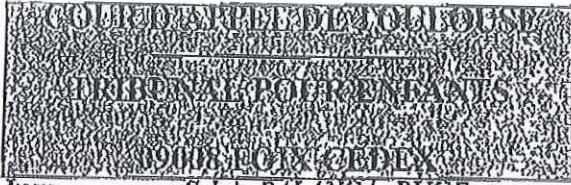 COUR D'APPEL DE TOULOUSE
TRIBUNAL POUR ENFANTS
09008 FOIX CEDEX